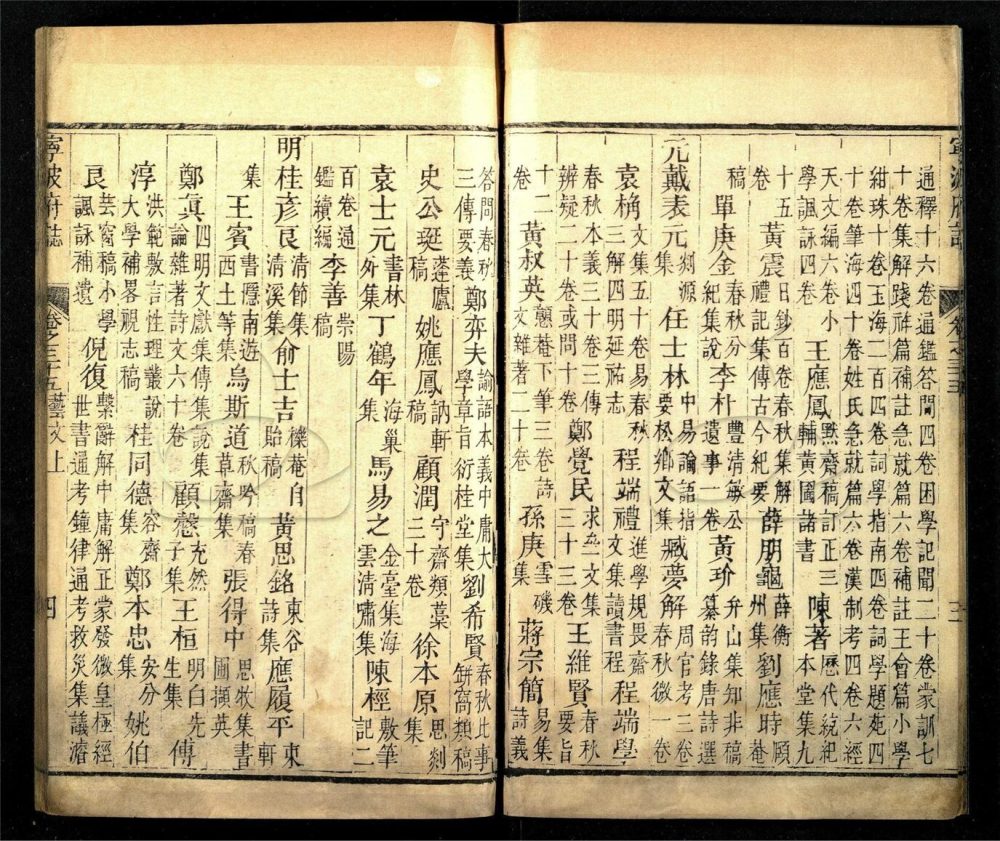 通釋十六卷通鑑答問四卷困學記聞二十卷蒙訓七
十卷集解踐祚篇補註急就篇六卷補註王會篇小學
紺珠十卷玉海一百四卷詞學指南四卷詞學題苑四
十卷筆海四十卷姓氏急就篇六卷漢制考四卷六經
天文編六卷小學諷詠四卷王應鳳默齋稿訂正三輔黃圖諸書陳著歷代統紀本堂集九
十五卷黃震日鈔百卷春秋集解禮記集傳古今紀要薛朋龜薛衡州集劉應時頤菴
稿單庚金春秋分紀集說李朴豐清敏公遺事一卷黃玠弁山集知非稿纂韵錄唐詩選
元戴表元剡源集任士林中易論語指要松鄉文集臧夢解周官考三卷春秋微一卷
袁桷文集五十卷易春秋三解四明延祐志程端禮進學規畏齋文集讀書程程端學
春秋本義三十卷三傳辨疑二十卷或問十卷鄭覺民求文集三十三卷王維賢春秋要旨
十二卷黃叔英戇菴下筆三卷詩文雜著二十卷孫庚雪磯集蔣宗簡易集詩義
答問春秋三傳要義鄭奕夫論語本義中庸大學章旨衍桂堂集劉希賢春秋比事餅窩類稿
史公珽蓬廬稿姚應鳳訥軒稿顧潤守齋類藁三十卷徐本原思剡集
袁士元書林外集丁鶴年海巢集馬易之金臺集海雲清嘯集陳桱敷筆記二
百卷通鑑續編李善崇陽稿
明桂彥良清節集清溪集俞士吉櫟菴自貽稿黃思銘東谷詩集應履平東軒
集王賓書隱南遊西土等集烏斯道秋吟稿春草齋集張得中思牧集書圃擷英
鄭眞四明文獻集傳說集論雜著詩文六十卷顧愨充然子集王桓明白先生集傅
淳洪範敷言性理叢說大學補畧視志稿桂同德容齋集鄭本忠安分集姚伯
良芸窗稿小學諷詠補遺倪復繫辭解中庸解正蒙發微皇極經世書通考鐘律通考救災集議濬
寧波府誌 卷之三十五 藝文上 四